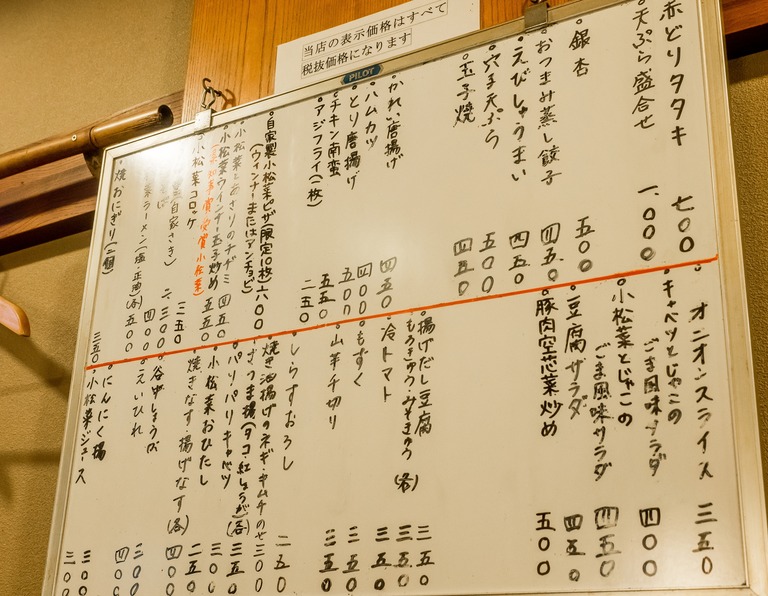 当店の表示価格はすべて
税抜価格になります
PILOT
赤どりタタキ 七〇〇
・天ぷら盛合せ 一、〇〇〇
・銀杏 五〇〇
・おつまみ蒸し餃子 四五〇
・えびしゅうまい 四五〇
・穴子天ぷら 五〇〇
・玉子焼 四五〇
・かれい唐揚げ 四五〇
・ハムカツ 四〇〇
・とり唐揚げ 五〇〇
・チキン南蛮 五五〇
・アジフライ(一枚) 二五〇
・自家製小松菜ピザ(限定10枚) 八〇〇
(ウィンナーまたはアンチョビ)
・小松菜とあさりのチヂミ 四五〇
・小松菜ウインナー玉子炒め 五五〇
小松菜)
・小松菜コロッケ 二五〇
自家さき)
ラーメン(塩・正油)(各) 四〇〇
五〇〇
・焼おにぎり(二個) 三五〇
オニオンスライス 三五〇
・キャベツとじゃこの
ごま風味サラダ 四〇〇
・小松菜とじゃこの
ごま風味サラダ 四五〇
・豆腐サラダ 四五〇
・豚肉空芯菜炒め 五〇〇
・揚げだし豆腐 三五〇
・もろきゅう・みそきゅう(各) 三五〇
・冷トマト 三五〇
・もずく 三五〇
・山芋千切り 三五〇
・しらすおろし 二五〇
・焼き油揚げのネギ・キムチのせ 三〇〇
・さつま揚(タコ・紅しょうが)(各) 三五〇
・パリパリキャベツ 三〇〇
・小松菜おひたし 二五〇
・焼きなす・揚げなす(各) 四〇〇
・谷中しょうが
・えいひれ 四〇〇
・にんにく揚 三〇〇
・小松菜ジュース 三〇〇